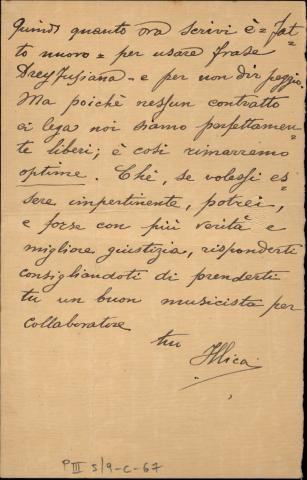 Quindi quanto ora scrivi è = fat-
to nuovo = per usare frase
Dreyfusiana - e per non dir peggio.
Ma poichè nessun contratto
ci lega noi siamo perfettamen-
te liberi; e così rimarremo
optime. Chè, se volessi es-
sere impertinente, potrei,
e forse con più verità e
migliore giustizia, risponderti
consigliandoti di prenderti
tu un buon musicista per
collaboratore
tuo
Illica
P III S/9-C-67